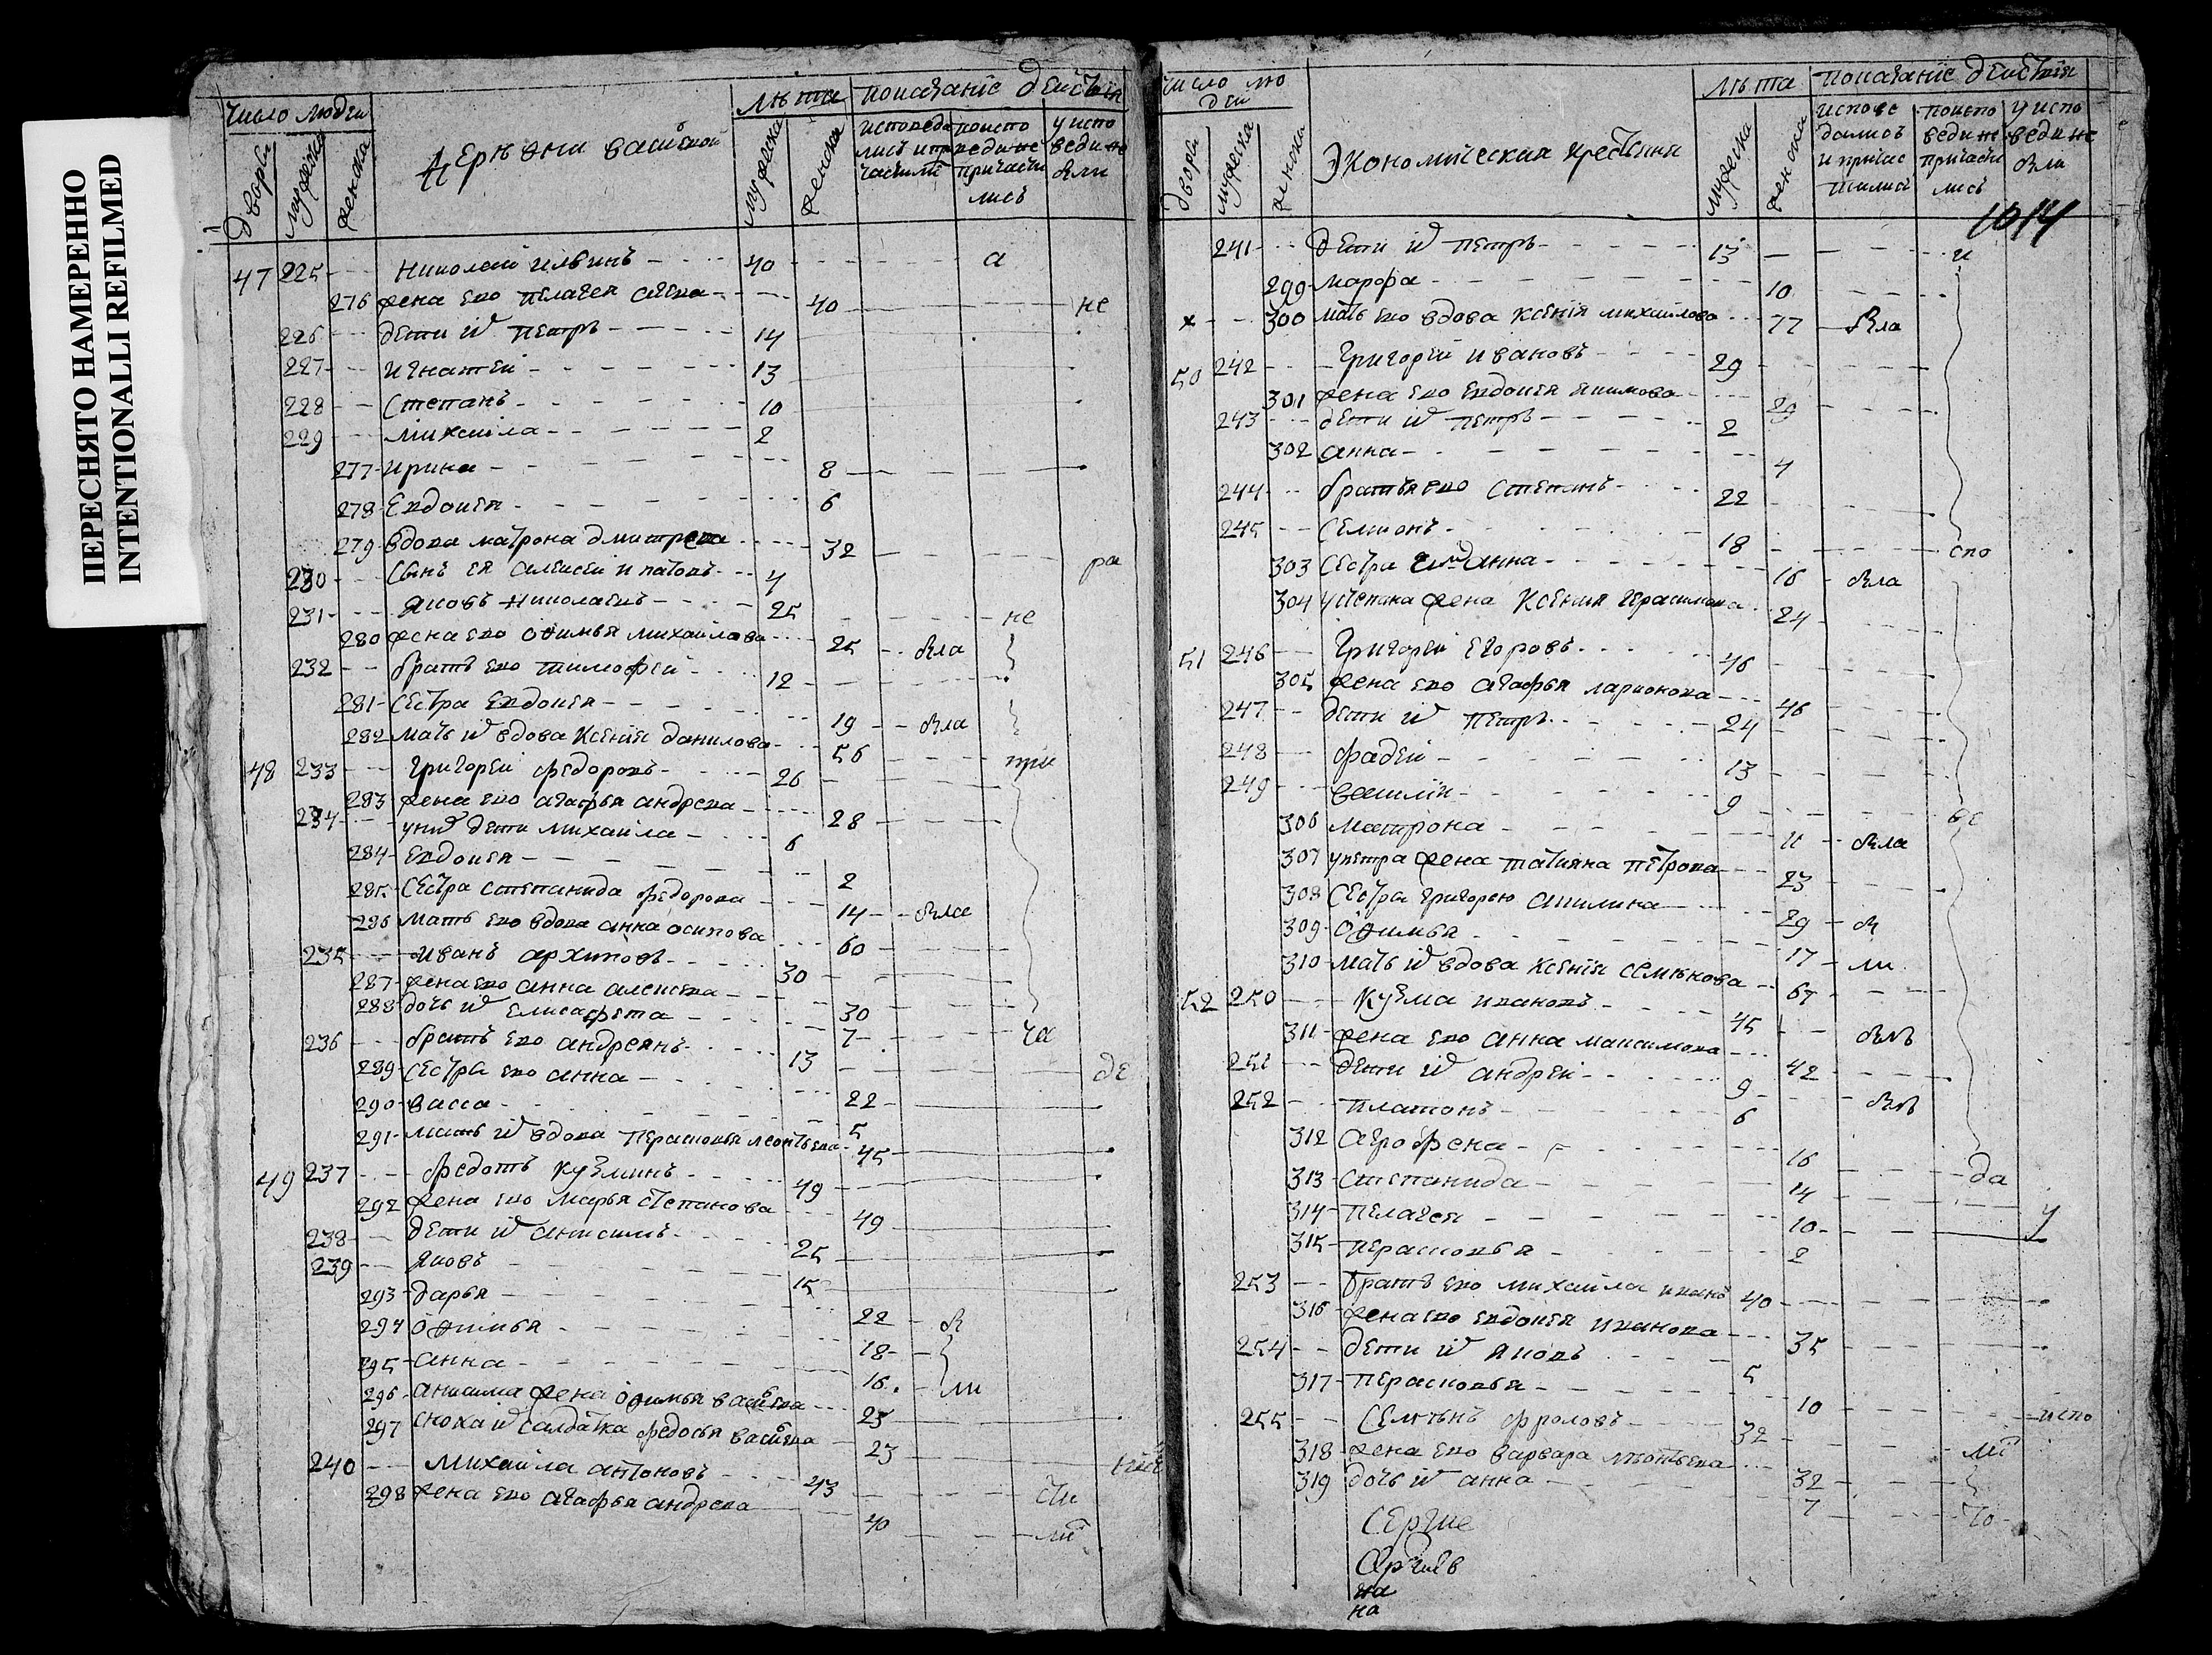 ПЕРЕСНЯТО НАМЕРЕННО
INTENTIONALLI REFILMED
Число людеи
лѣта
показанїе действїя
двора
мужеска
женска
Деревни
мужеска
женска
исповеда
лись и при
частили
поиспо
веди не
причасти
лись
у испо
веди не
были
47 225 Николаи ильинъ 40 а
276 жена ево пелагея 40 не
226 дети их петръ 14
227 игнатеи 13
228 степанъ 10
229 михаила 2
277 ирина 8
278 Евдокея 6
279 вдова матрона дмитрева 32
230 сынъ ея алексеи ипатовъ 4 ра
231 яковъ николаевъ 25 не
280 жена ево офимья михаилова 25 была
232 братъ ево тимофеи 12
281 сестра евдокея 19 была
282 мать их вдова Ксенїя данилова 56 при
48 233 григореи федоровъ 26
283 жена ево агафья андрева 28
234 у них дети михаила 6
284 евдокея 2
285 сестра степанида федорова 14 была
286 мать ево вдова анна осипова 60
235 иванъ архиповъ 30
287 жена ево анна алексева 30
288 дочь их елисафета 7 ча
236 братъ ево андреянъ 13
289 сестра ево анна 22 де
290 васса 5
291 мать их вдова перасковья леонтьева 45
49 237 федотъ кузминъ 49
292 жена ево марья степанова 49
238 дети их анисимъ 25
239 яковъ 15
293 дарья 22 б
294 офимья 18
295 анна 16 ли
296 анисима жена офимья васильева 25
297 сноха их салдатка федосья васильева 23
240 михаила антоновъ 43 сти
298 жена ево агафья андрева 40 ли
число лю
деи
лѣта
показанїе действїя
двора
мужеска
женска
Экономическия крестьяня
мужеска
женска
испове
дались
и причас
тились
поиспо
веди не
причасти
лись
у испо
веди не
были
1014
241 дети их петръ 13 и
299 марфа 10
х 300 мать ево вдова ксенїя михаилова 77 была
50 242 григореи ивановъ 29
301 жена ево евдокея якимова 29
243 дети их петръ 2
302 анна 4
244 братья ево степанъ 22
245 семионъ 18 спо
303 сестра им анна 16 была
304 у степана жена ксения герасимова 24
51 246 григореи егоровъ 46
305 жена ево агафья ларионова 46
247 дети их петръ 24
248 фадеи 13
249 василїи 9 ве
306 матрона 11 была
307 у петра жена татияна петрова 23
308 сестра григорью акилина 29 б
309 офимья 17 ли
310 мать их вдова ксенїя семенова 67
52 250 кузма ивановъ 45 былъ
311 жена ево анна максимова 42
251 дети их андреи 9 былъ
252 платонъ 6
312 аграфена 16 да
313 степанида 14
314 пелагея 10 у
315 перасковья 2
253 братъ ево михаила иванъ 40
316 жена ево евдокея иванова 35
254 дети их яковъ 5
317 перасковья 10
255 семенъ фроловъ 32 испо
318 жена ево варвара леонтьева 32 ли
319 дочь их анна 7 то
Сергие
на
на